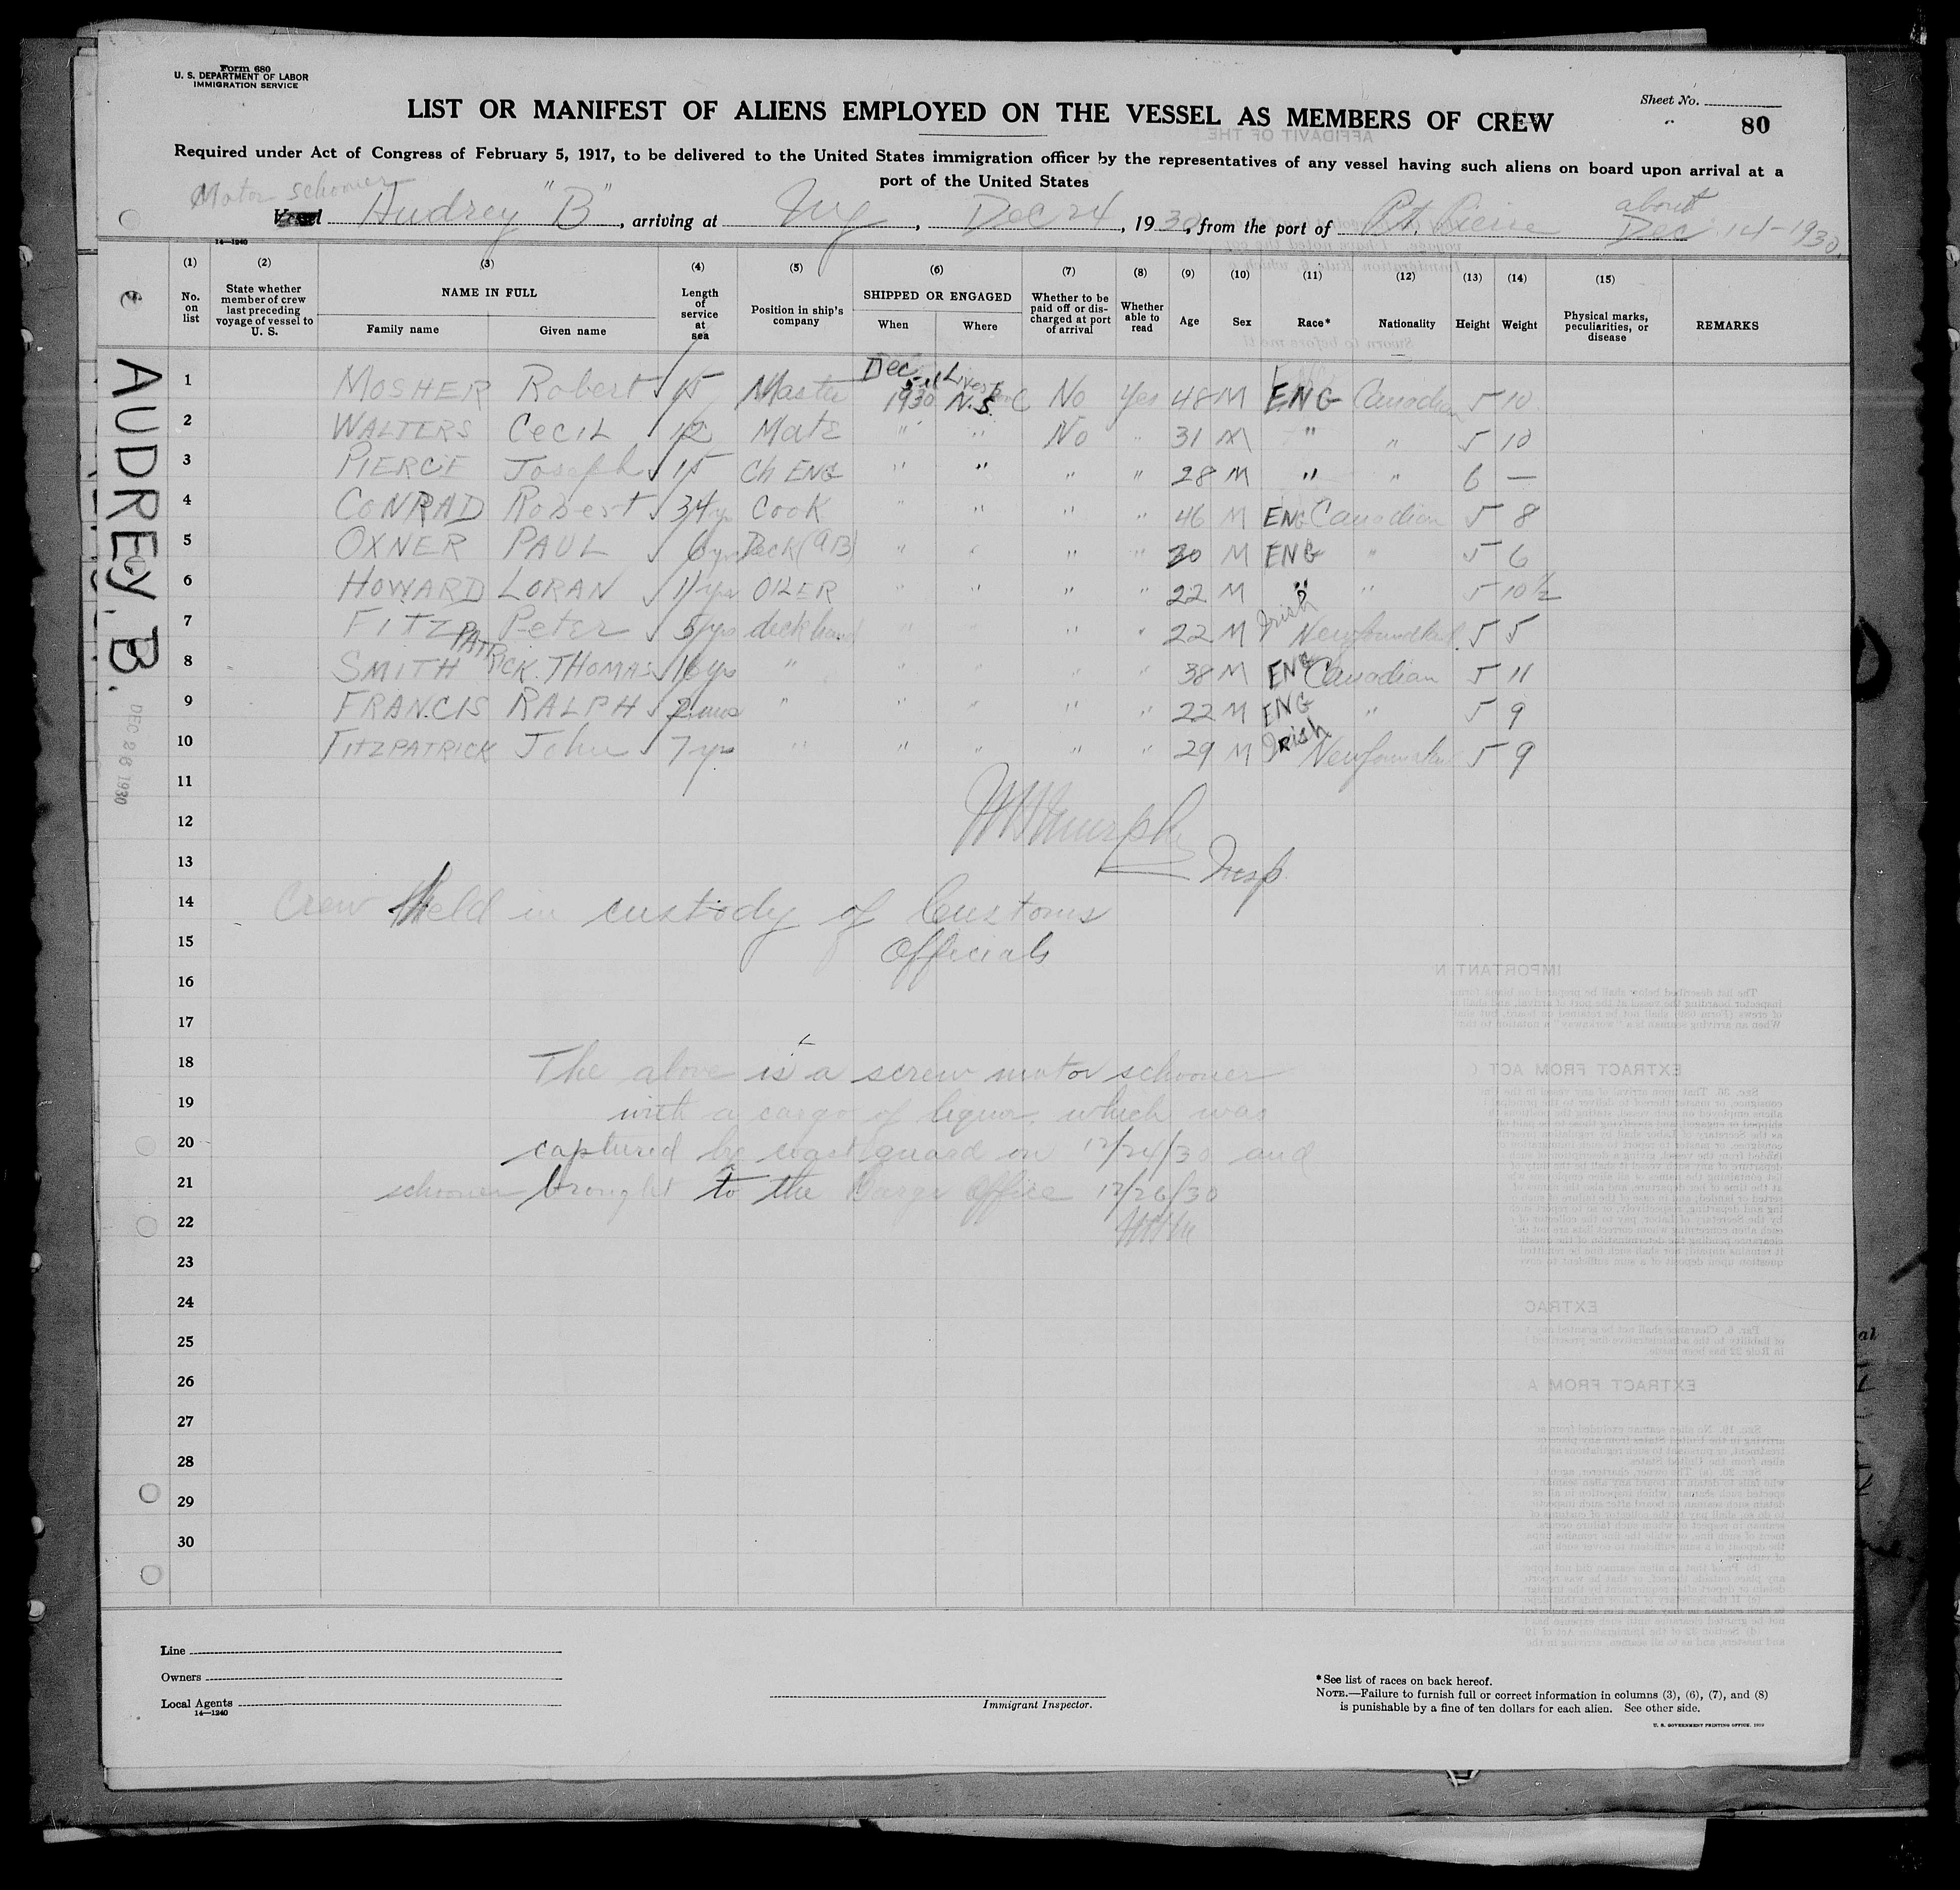 Form 680
U. S. DEPARTMENT OF LABOR
IMMIGRATION SERVICE
Sheet No.
80
LIST OR MANIFEST OF ALIENS EMPLOYED ON THE VESSEL AS MEMBERS OF CREW
Required under Act of Congress of February 5, 1917, to be delivered to the United States immigration officer by the representatives of any vessel having such aliens on board upon arrival at a
port of the United States
Motor schooner
Vessel Audrey "B", arriving at NY, Dec 24, 1930, from the port of St. Pierre about Dec 14-1930.
14—1240
(1) (2) (3) (4) (5) (6) (7) (8) (9) (10) (11) (12) (13) (14) (15)
No. on list State whether member of crew last preceding voyage of vessel to U. S. NAME IN FULL Family name Given name Length of service at sea Position in ship's company SHIPPED OR ENGAGED When Where Whether to be paid off or discharged at port of arrival Whether able to read Age Sex Race* Nationality Height Weight Physical marks, peculiarities, or disease REMARKS
1 MOSHER Robert 15 Master Dec 1930 N.S. No Yes 48 M ENG Canadian 5 10
2 WALTERS CECIL 12 Mate " " No " 31 M " " 5 10
3 PIERCE Joseph 15 Ch ENG " " " " 28 M " " 6 —
4 CONRAD Robert 34 yrs COOK " " " " 46 M ENG Canadian 5 8
5 OXNER PAUL 6 yrs Deck (AB) " " " " 20 M ENG " 5 6
6 HOWARD LORAN 11 yrs OILER " " " " 22 M " " 5 10 1/2
7 FITZPATRICK Peter 5 yrs deck hand " " " " 22 M Irish Newfoundland 5 5
8 SMITH THOMAS 16 yrs " " " " " 38 M ENG Canadian 5 11
9 FRANCIS RALPH 2 mos " " " " " 22 M ENG " 5 9
10 FITZPATRICK John 7 yrs " " " " " 29 M Irish 5 9
11
12
13 Insp
14 Crew Held in custody of Customs
15 Officials
16
17
18 The above is a screw motor schooner
19 with a cargo of liquor which was
20 captured by coast guard on 12/24/30 and
21 schooner brought to the Barge Office 12/26/30
22
23
24
25
26
27
28
29
30
AUDREY. B.
DEC 26 1930
Line
Owners
Local Agents
14—1240
Immigrant Inspector.
*See list of races on back hereof.
NOTE.—Failure to furnish full or correct information in columns (3), (6), (7), and (8)
is punishable by a fine of ten dollars for each alien. See other side.